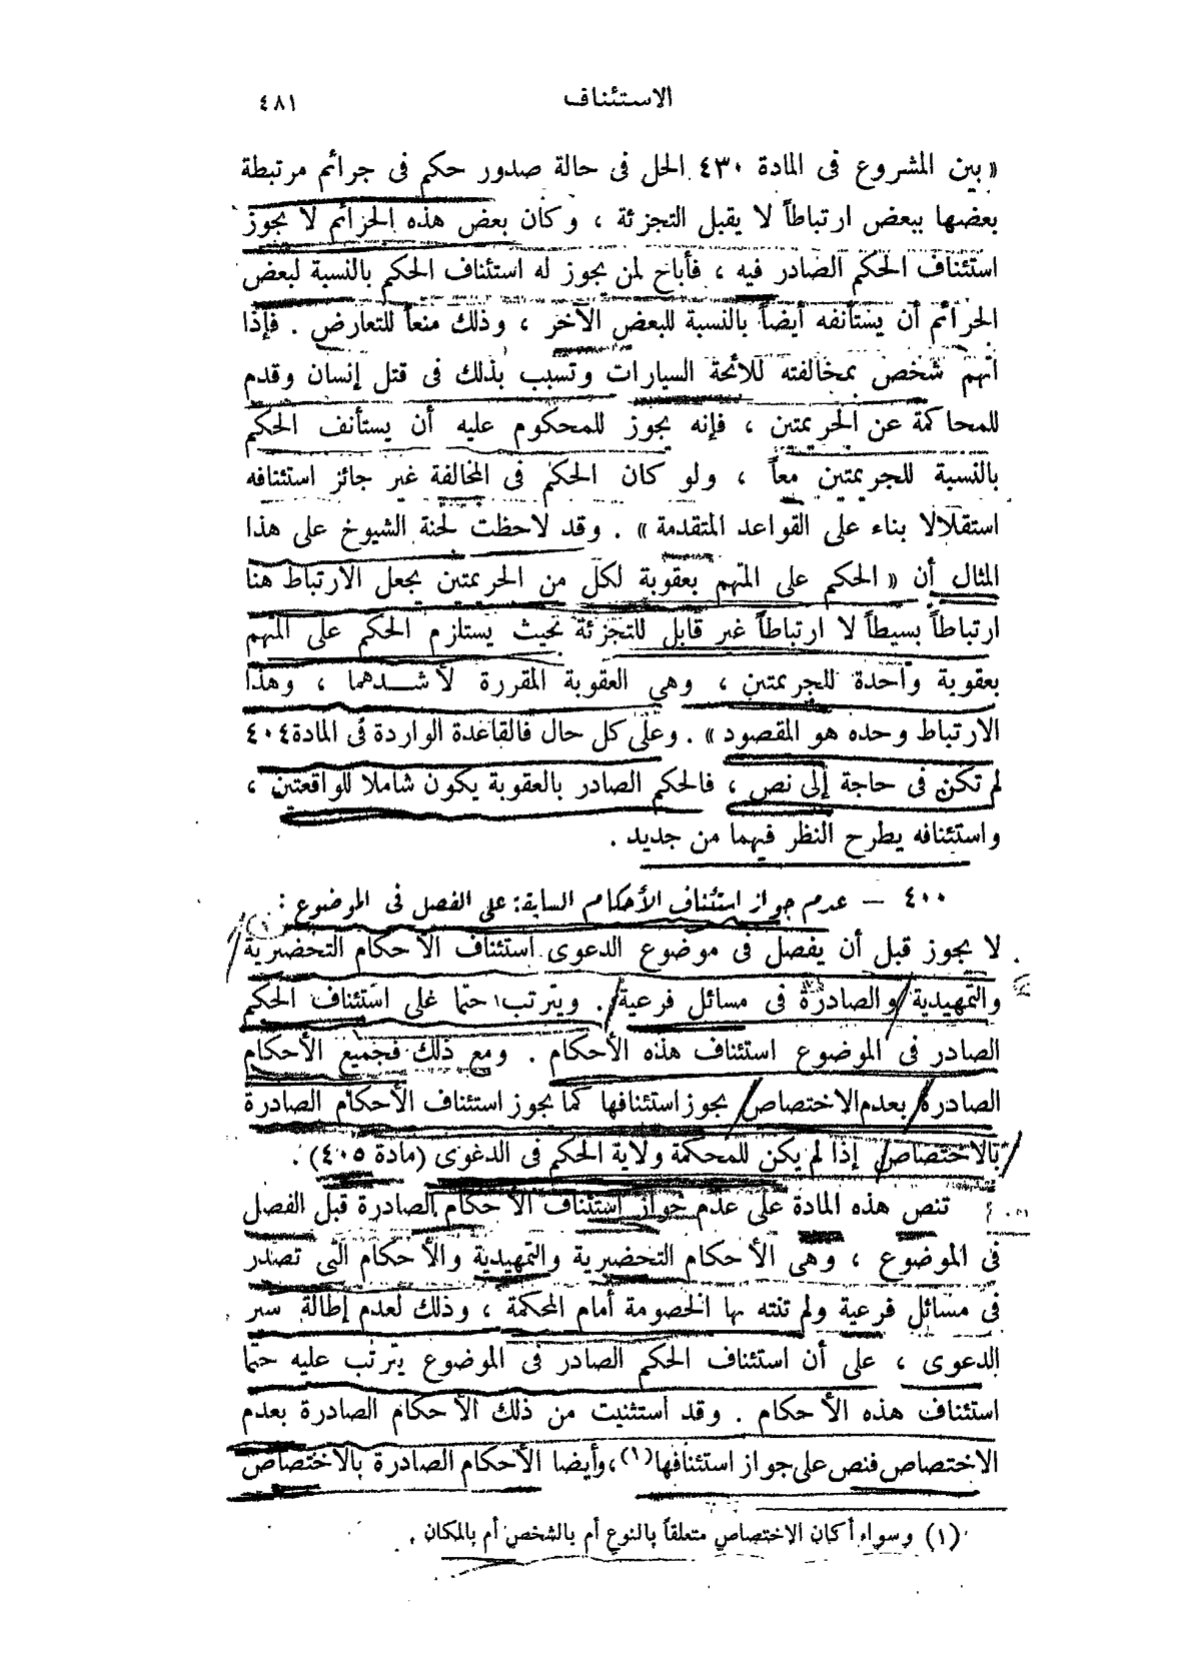 الاستئناف ٤٨١
« بين المشروع فى المادة ٤٣٠ الحل فى حالة صدور حكم فى جرائم مرتبطة
بعضها ببعض ارتباطاً لا يقبل التجزئة ، وكان بعض هذه الجرائم لا يجوز
استئناف الحكم الصادر فيه ، فأباح لمن يجوز له استئناف الحكم بالنسبة لبعض
الجرائم أن يستأنفه أيضاً بالنسبة للبعض الآخر ، وذلك منعاً للتعارض . فإذا
اتهم شخص بمخالفته للائحة السيارات وتسبب بذلك فى قتل إنسان وقدم
للمحاكمة عن الجريمتين ، فإنه يجوز للمحكوم عليه أن يستأنف الحكم
بالنسبة للجريمتين معاً ، ولو كان الحكم فى المخالفة غير جائز استئنافه
استقلالا بناء على القواعد المتقدمة » . وقد لاحظت لجنة الشيوخ على هذا
المثال أن « الحكم على المتهم بعقوبة لكل من الجريمتين يجعل الارتباط هنا
ارتباطاً بسيطاً لا ارتباطاً غير قابل للتجزئة بحيث يستلزم الحكم على المتهم
بعقوبة واحدة للجريمتين ، وهي العقوبة المقررة لأشدهما ، وهذا
الارتباط وحده هو المقصود » . وعلى كل حال فالقاعدة الواردة فى المادة ٤٠٤
لم تكن فى حاجة إلى نص ، فالحكم الصادر بالعقوبة يكون شاملا للواقعتين ،
واستئنافه يطرح النظر فيهما من جديد .
٤٠٠ – عدم جواز استئناف الأحكام السابقة على الفصل فى الموضوع :
لا يجوز قبل أن يفصل فى موضوع الدعوى استئناف الأحكام التحضيرية
والتمهيدية والصادرة فى مسائل فرعية . ويترتب حتما على استئناف الحكم
الصادر فى الموضوع استئناف هذه الأحكام . ومع ذلك فجميع الأحكام
الصادرة بعدم الاختصاص يجوز استئنافها كما يجوز استئناف الأحكام الصادرة
بالاختصاص إذا لم يكن للمحكمة ولاية الحكم فى الدعوى (مادة ٤٠٥) .
تنص هذه المادة على عدم جواز استئناف الأحكام الصادرة قبل الفصل
فى الموضوع ، وهى الأحكام التحضيرية والتمهيدية والأحكام التى تصدر
فى مسائل فرعية ولم تنته بها الخصومة أمام المحكمة ، وذلك لعدم إطالة سير
الدعوى ، على أن استئناف الحكم الصادر فى الموضوع يترتب عليه حتما
استئناف هذه الأحكام . وقد استثنيت من ذلك الأحكام الصادرة بعدم
الاختصاص فنص على جواز استئنافها(١)، وأيضا الأحكام الصادرة بالاختصاص
(١) وسواء أكان الاختصاص متعلقاً بالنوع أم بالشخص أم بالمكان .